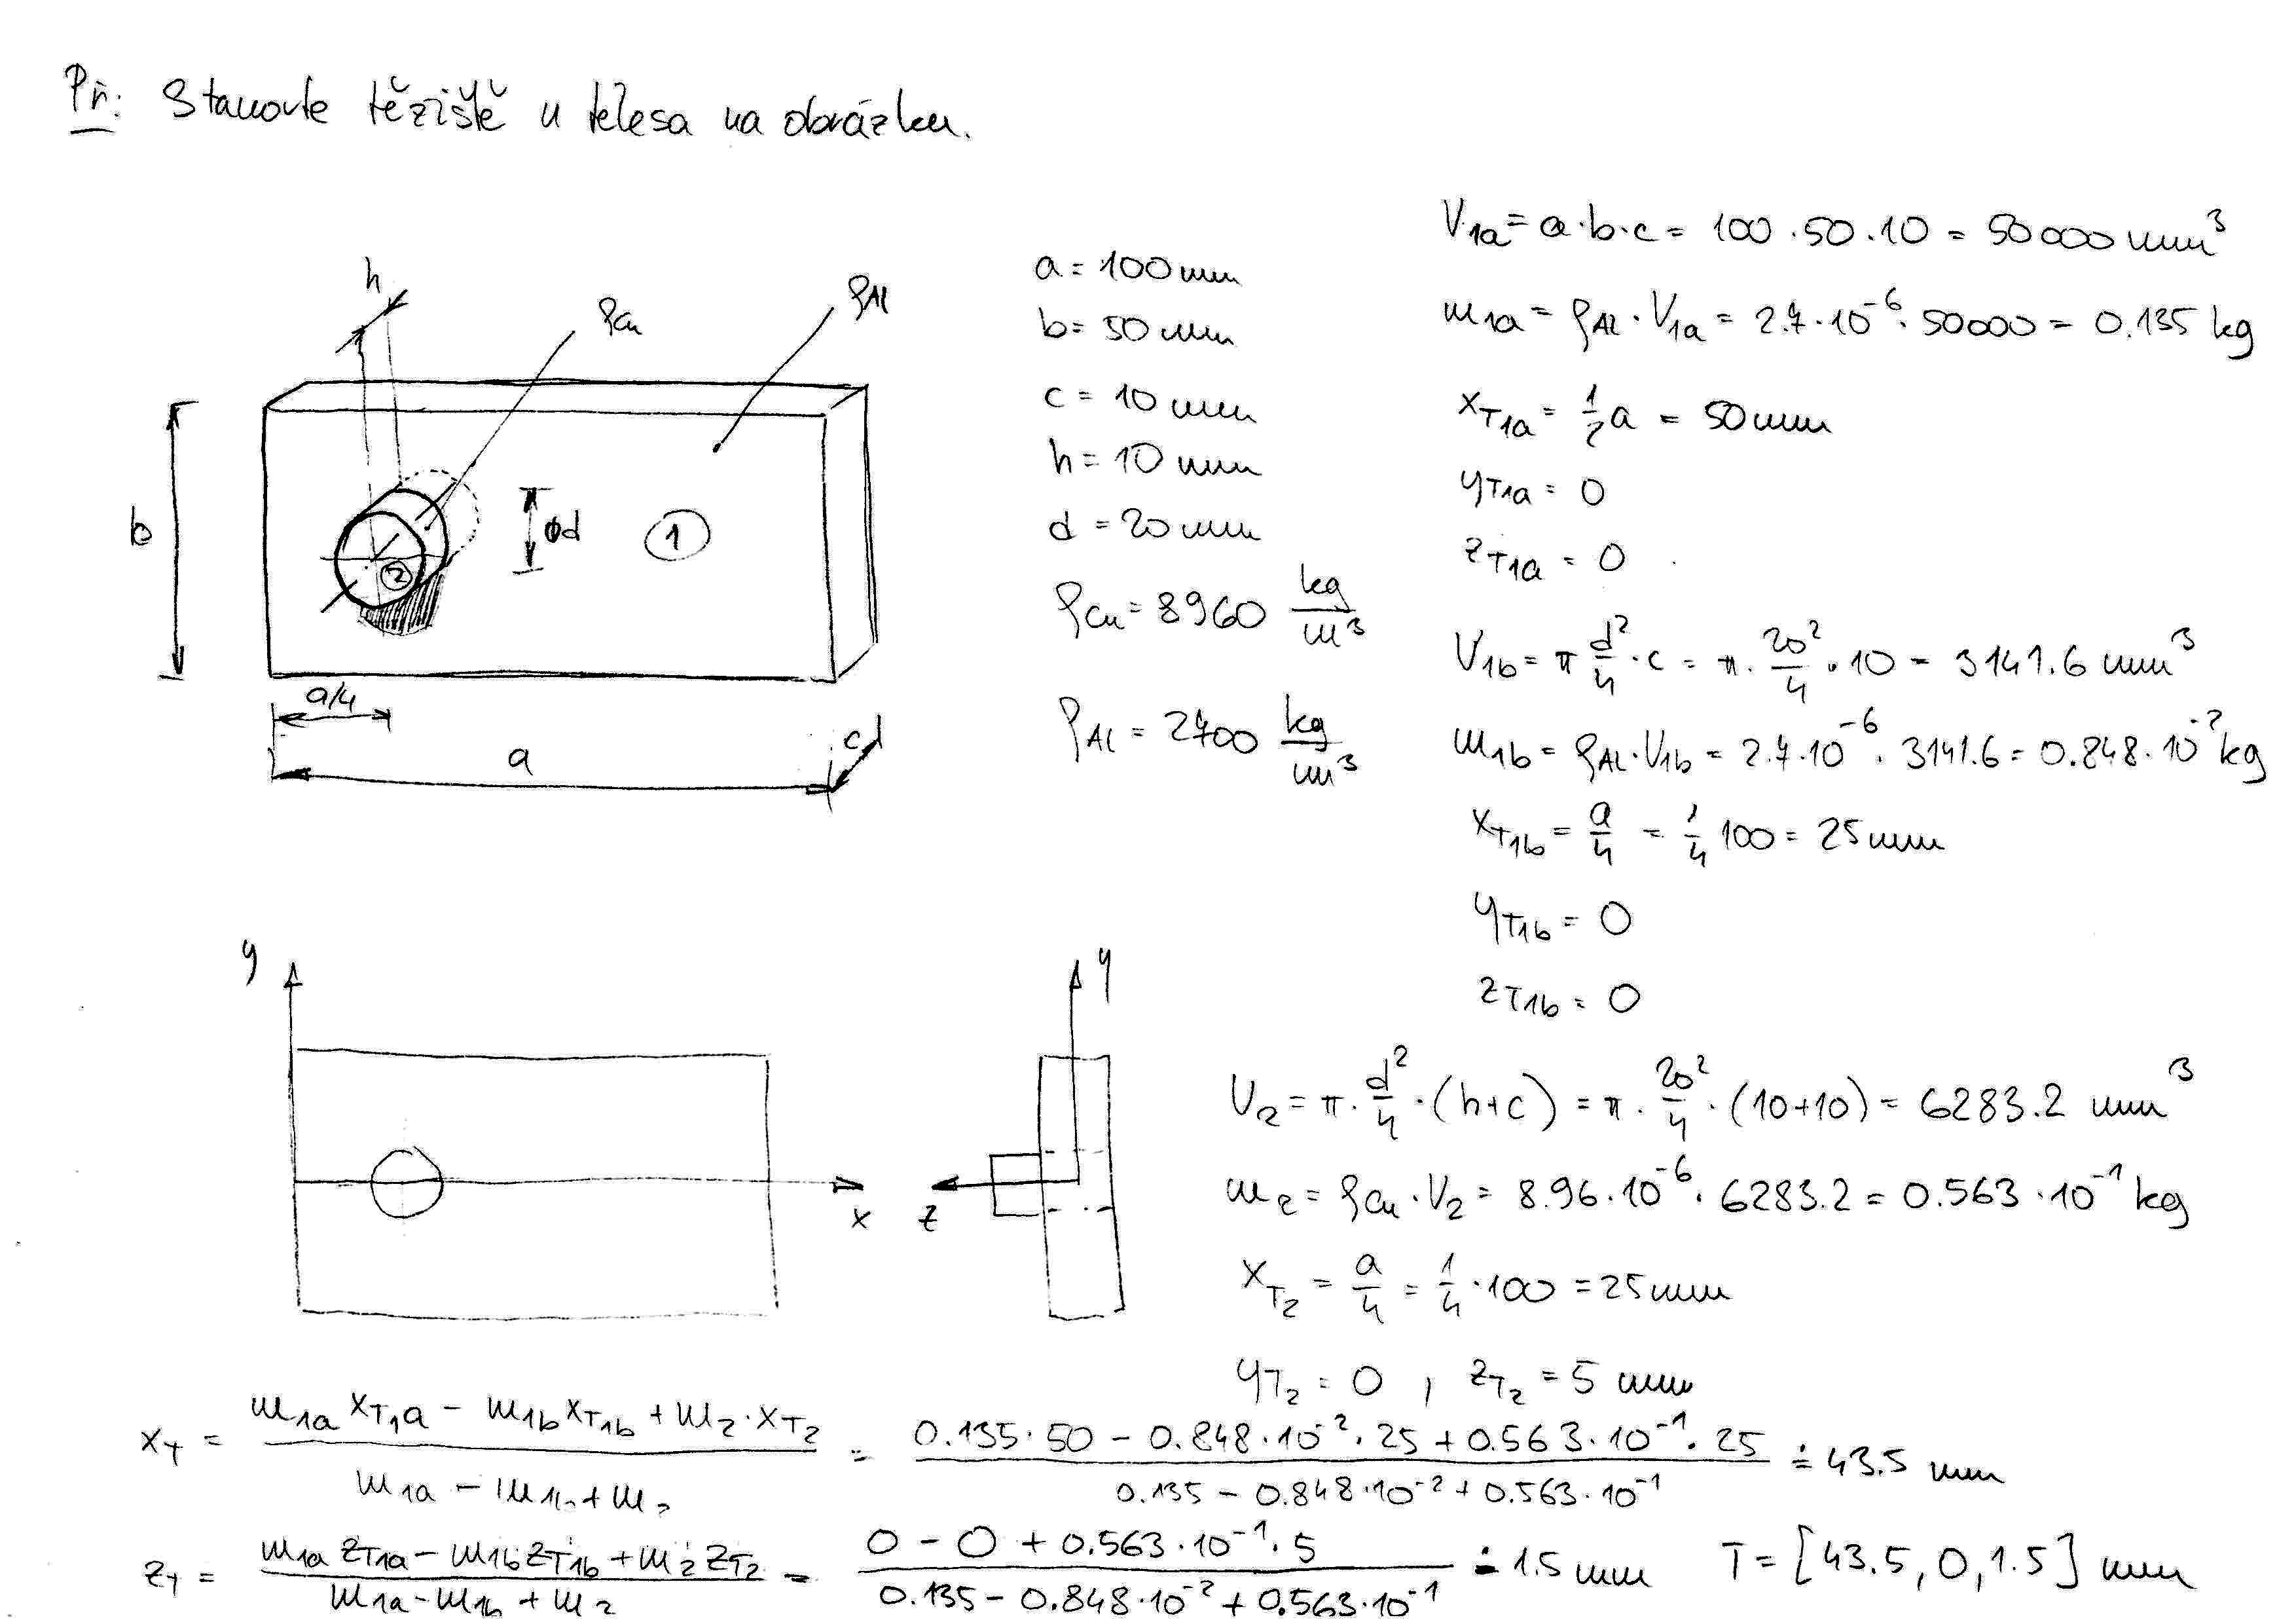 Př: Stanovte těžiště u tělesa na obrázku.
h
ρCu
ρAl
b
ød
1
2
a/4
a
c
a = 100 mm
b = 50 mm
c = 10 mm
h = 10 mm
d = 20 mm
ρCu = 8960 kg/m³
ρAl = 2700 kg/m³
V1a = a·b·c = 100·50·10 = 50000 mm³
m1a = ρAl·V1a = 2.7·10⁻⁶·50000 = 0.135 kg
xT1a = 1/2 a = 50 mm
yT1a = 0
zT1a = 0
V1b = π d²/4 · c = π · 20²/4 · 10 = 3141.6 mm³
m1b = ρAl·V1b = 2.7·10⁻⁶ · 3141.6 = 0.848·10⁻² kg
xT1b = a/4 = 1/4 100 = 25 mm
yT1b = 0
zT1b = 0
y
x
y
z
V2 = π · d²/4 · (h+c) = π · 20²/4 · (10+10) = 6283.2 mm³
m2 = ρCu·V2 = 8.96·10⁻⁶ · 6283.2 = 0.563·10⁻¹ kg
xT2 = a/4 = 1/4 · 100 = 25 mm
yT2 = 0 , zT2 = 5 mm
xT = (m1a xT1a − m1b xT1b + m2·xT2)/(m1a − m1b + m2) = (0.135·50 − 0.848·10⁻²·25 + 0.563·10⁻¹·25)/(0.135 − 0.848·10⁻² + 0.563·10⁻¹) ≐ 43.5 mm
zT = (m1a zT1a − m1b zT1b + m2 zT2)/(m1a − m1b + m2) = (0 − 0 + 0.563·10⁻¹·5)/(0.135 − 0.848·10⁻² + 0.563·10⁻¹) ≐ 1.5 mm T = [43.5, 0, 1.5] mm